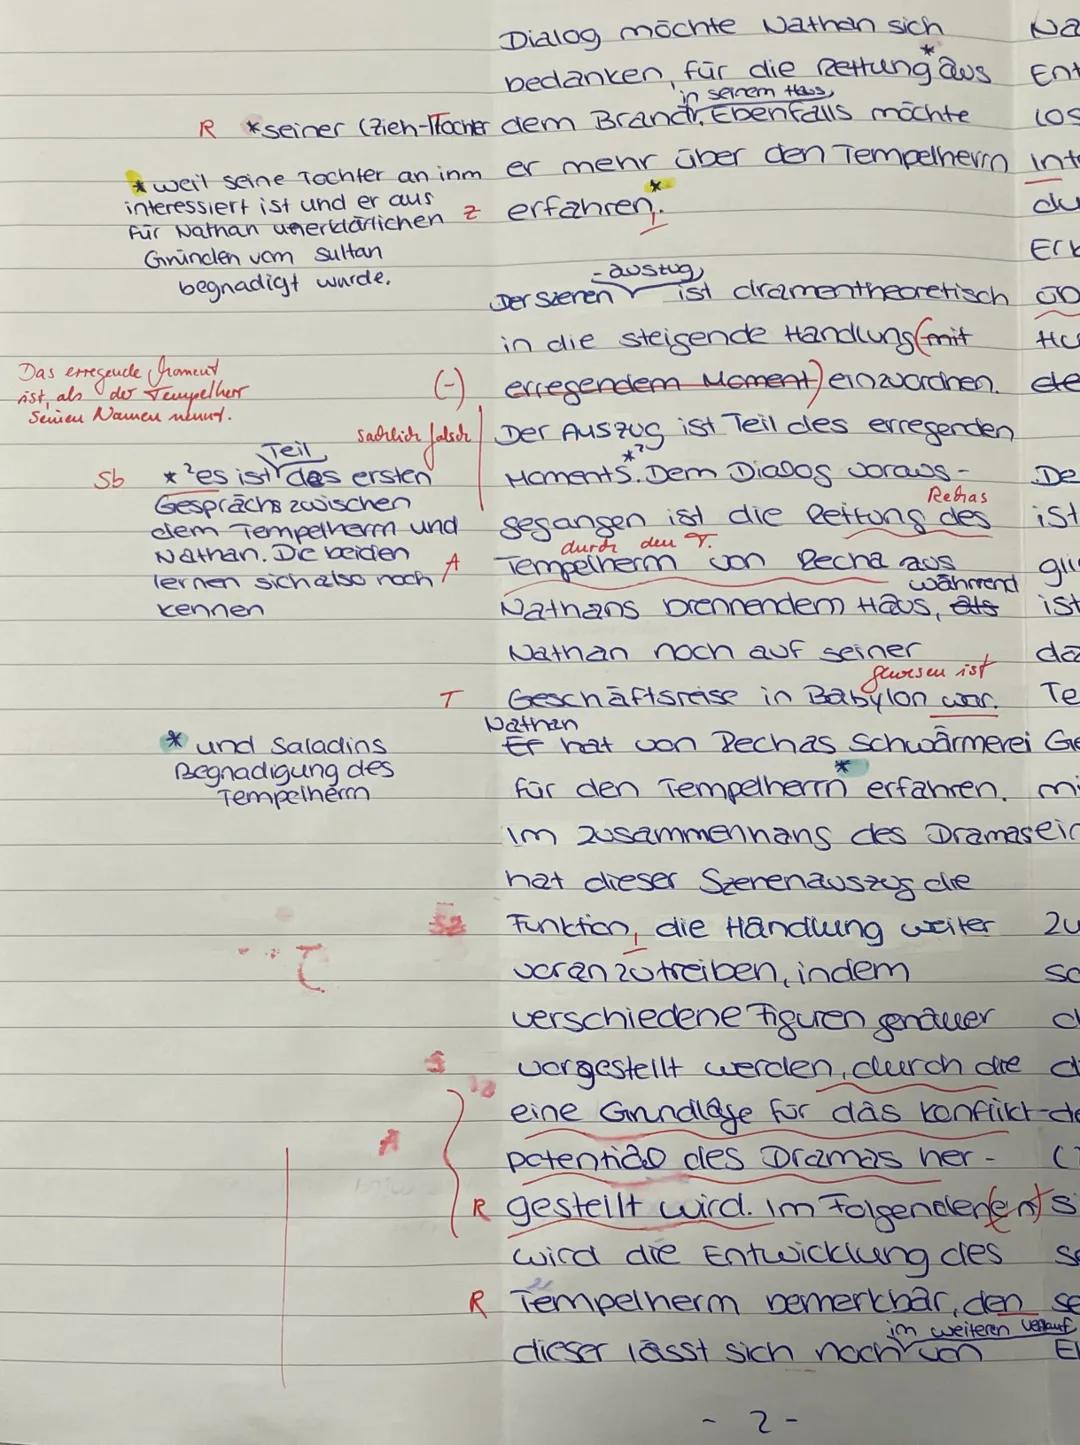 Dialog möchte Nathan sich
bedanken, für die Rettung * aus
in seinem Haus
R *seiner (Zieh-)Tochter dem Brand. Ebenfalls möchte
er mehr über den Tempelherrn
erfahren.*
* weil seine Tochter an ihm
interessiert ist und er aus
für Nathan unerklärlichen Z
Gründen vom Sultan
begnadigt wurde.
-auszug
Der Szenen ist dramentheoretisch
in die steigende Handlung (mit
erregendem Moment) einzuordnen.
Das erregende Moment
ist, als der Tempelherr
seinen Namen nennt.
(-)
sachlich falsch
Der Auszug ist Teil des erregenden
*²
Moments. Dem Dialog voraus-
Rechas
gegangen ist die Rettung des
durch den T.
Tempelherrn von Recha aus
während
Nathans brennendem Haus, als
Teil
Sb *²es ist des ersten
Gesprächs zwischen
dem Tempelherrn und
Nathan. Die beiden
lernen sich also noch A
kennen
Nathan noch auf seiner
gewesen ist
T Geschäftsreise in Babylon war.
Nathan
Er hat von Rechas Schwärmerei
*
für den Tempelherrn erfahren.
* und Saladins
Begnadigung des
Tempelherrn
Im Zusammenhang des Dramas
hat dieser Szenenauszug die
Funktion, die Handlung weiter
voranzutreiben, indem
verschiedene Figuren genauer
vorgestellt werden, durch die
eine Grundlage für das Konflikt-
potential des Dramas her-
R gestellt wird. Im Folgenden(en)
wird die Entwicklung des
R Tempelherrn bemerkbar, den
im weiteren Verlauf
dieser lässt sich noch von
- 2 -